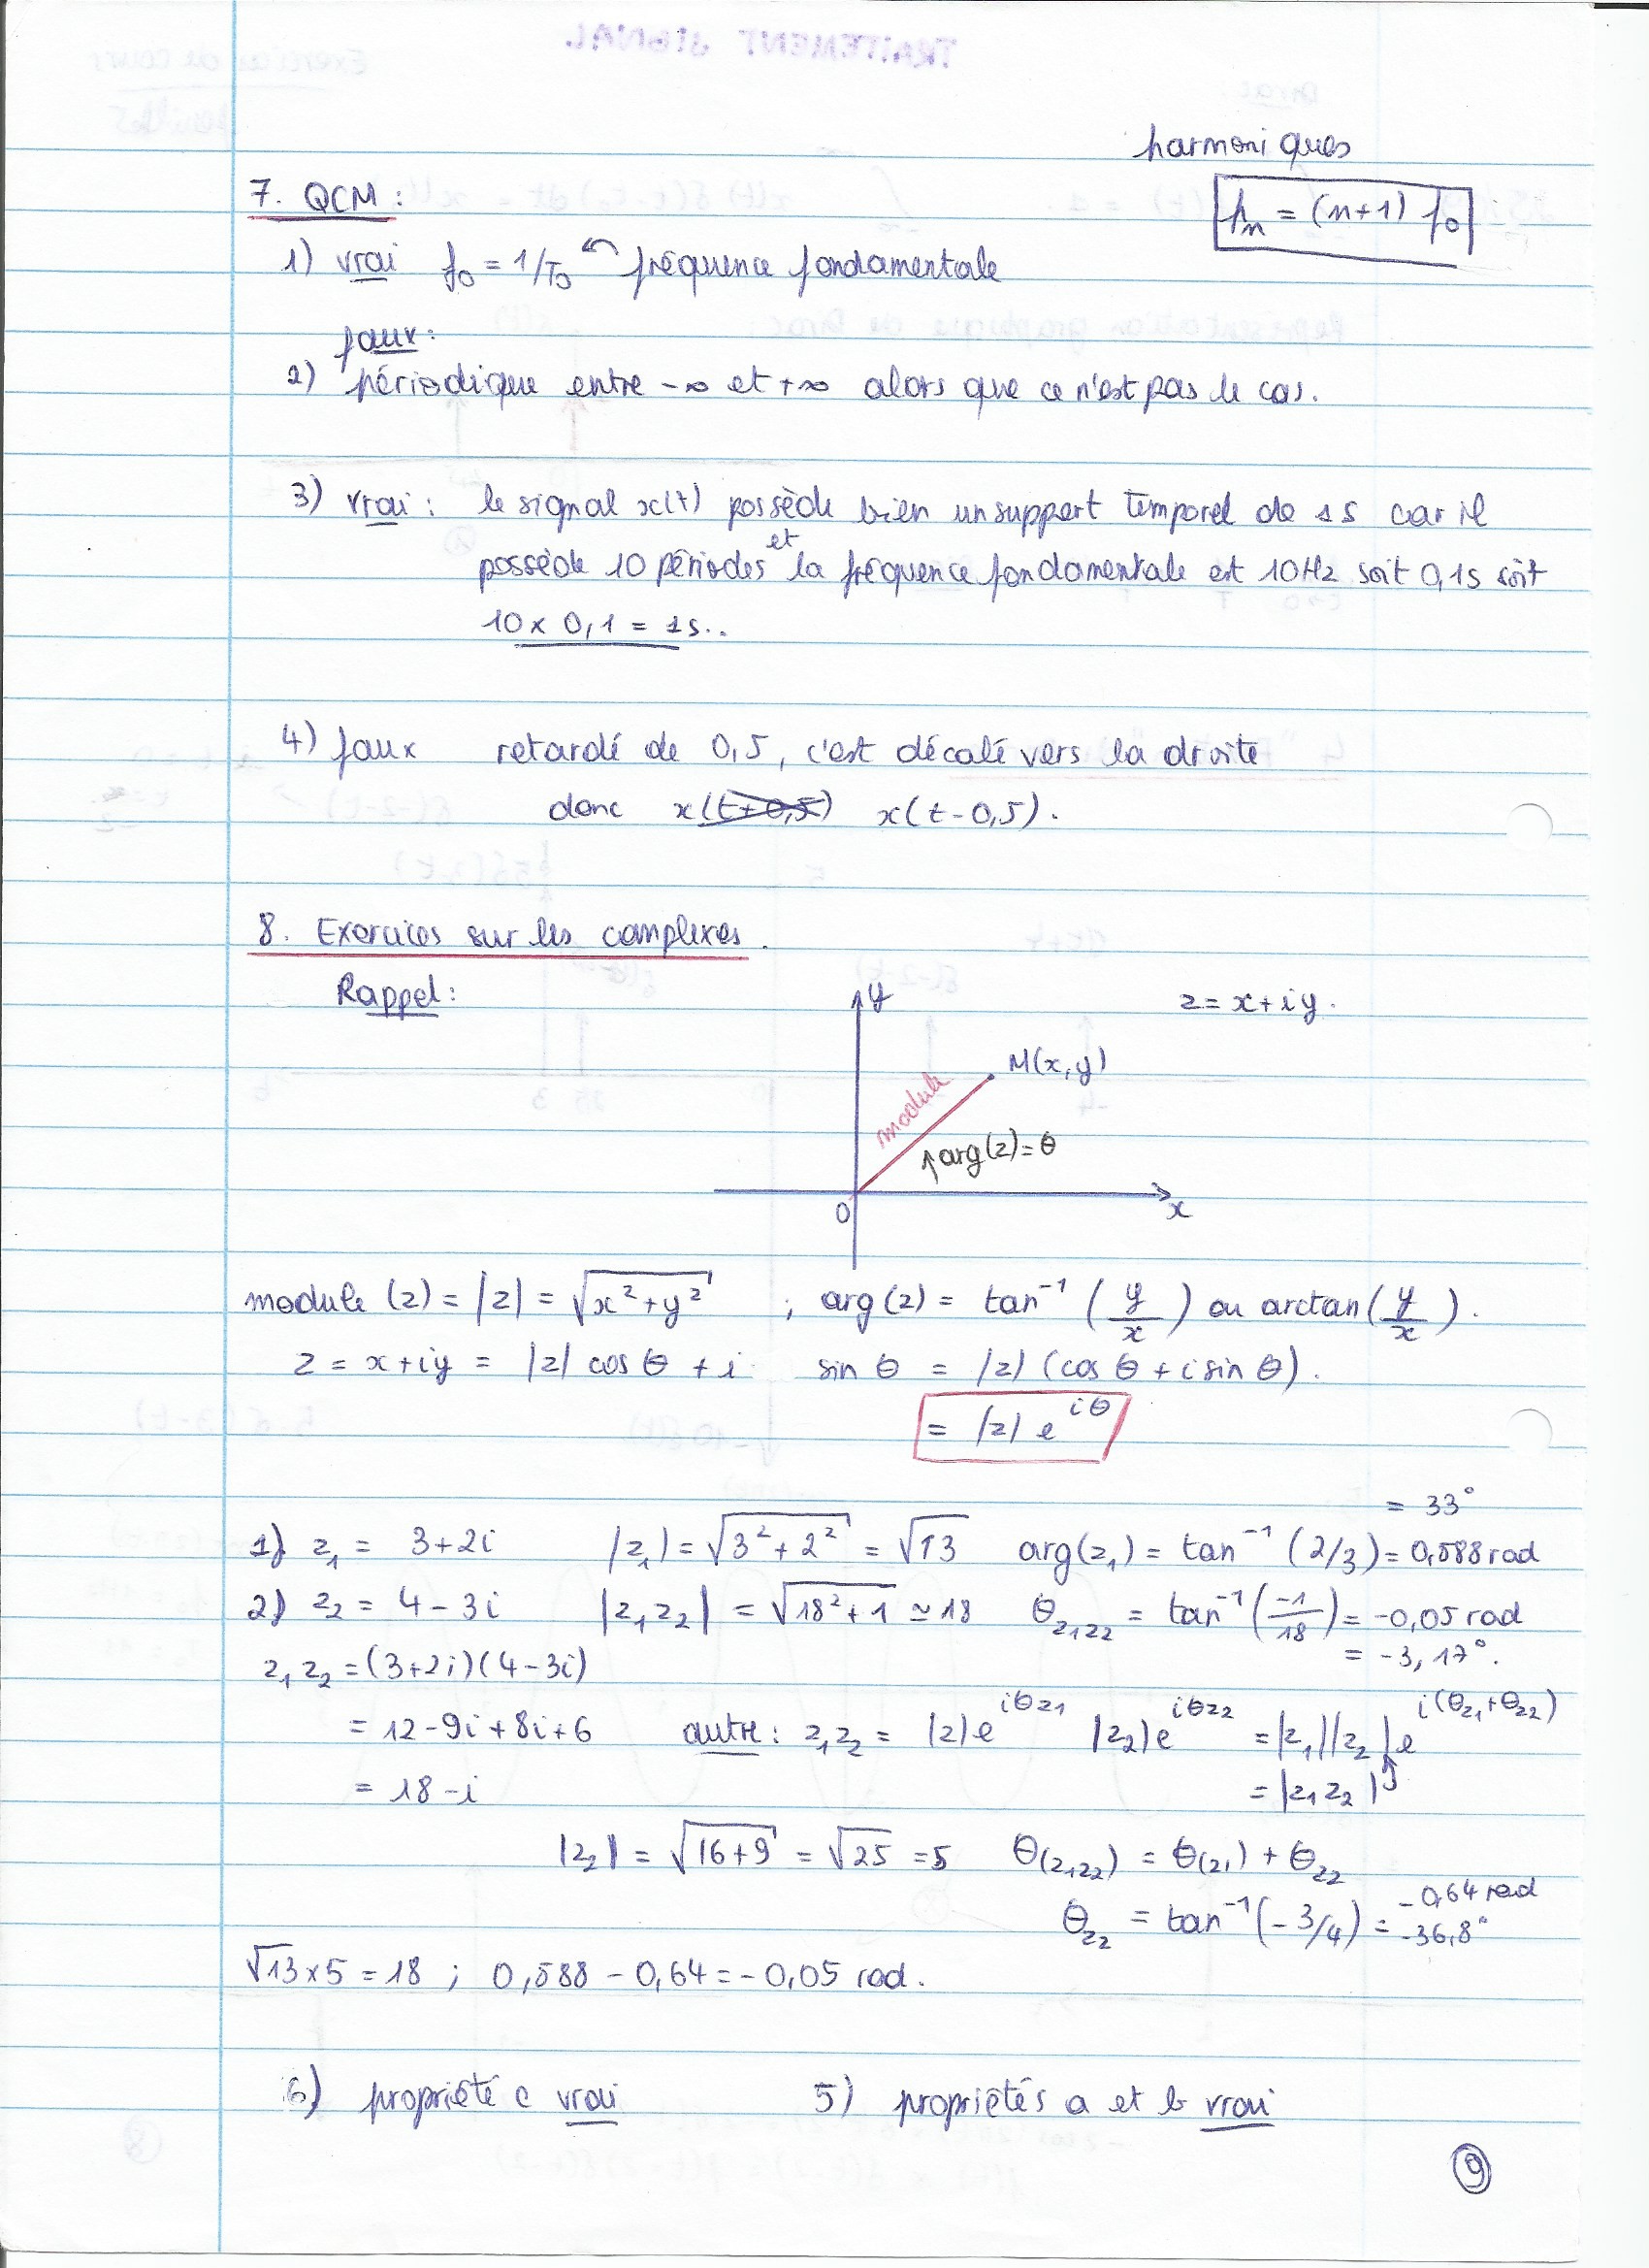 harmoniques
7. QCM :
fn = (n+1) f0
1) vrai f0 = 1/T0 fréquence fondamentale
faux :
2) périodique entre -∞ et +∞ alors que ce n'est pas le cas.
3) vrai : le signal x(t) possède bien un support temporel de 1s car il
possède 10 périodes et la fréquence fondamentale est 10Hz soit 0,1s soit
10 x 0,1 = 1s..
4) faux retardé de 0,5, c'est décalé vers la droite
donc x(t+0,5) x(t-0,5).
8. Exercices sur les complexes.
Rappel :
y
z = x+iy.
M(x,y)
module
arg(z) = θ
0
x
module (z) = |z| = √(x²+y²) ; arg(z) = tan⁻¹ (y/x) ou arctan(y/x).
z = x+iy = |z| cos θ + i sin θ = |z| (cos θ + i sin θ).
= |z| e^{iθ}
= 33°
1) z₁ = 3+2i |z₁| = √(3²+2²) = √13 arg(z₁) = tan⁻¹ (2/3) = 0,588 rad
2) z₂ = 4-3i |z₁z₂| = √(18²+1) ≃ 18 θz₁z₂ = tan⁻¹(-1/18) = -0,05 rad
= -3,17°.
z₁z₂ = (3+2i)(4-3i)
= 12-9i+8i+6 autre : z₁z₂ = |z|e^{iθz1} |z₂|e^{iθz2} = |z₁||z₂|e^{i(θz₁+θz2)}
= 18-i = |z₁z₂|
|z₂| = √(16+9) = √25 = 5 θ(z₁z₂) = θ(z₁) + θz₂
-0,64 rad
θz₂ = tan⁻¹(-3/4) = -36,8°
√13 x 5 = 18 ; 0,588 - 0,64 = -0,05 rad.
6) propriété c vrai 5) propriétés a et b vrai
9